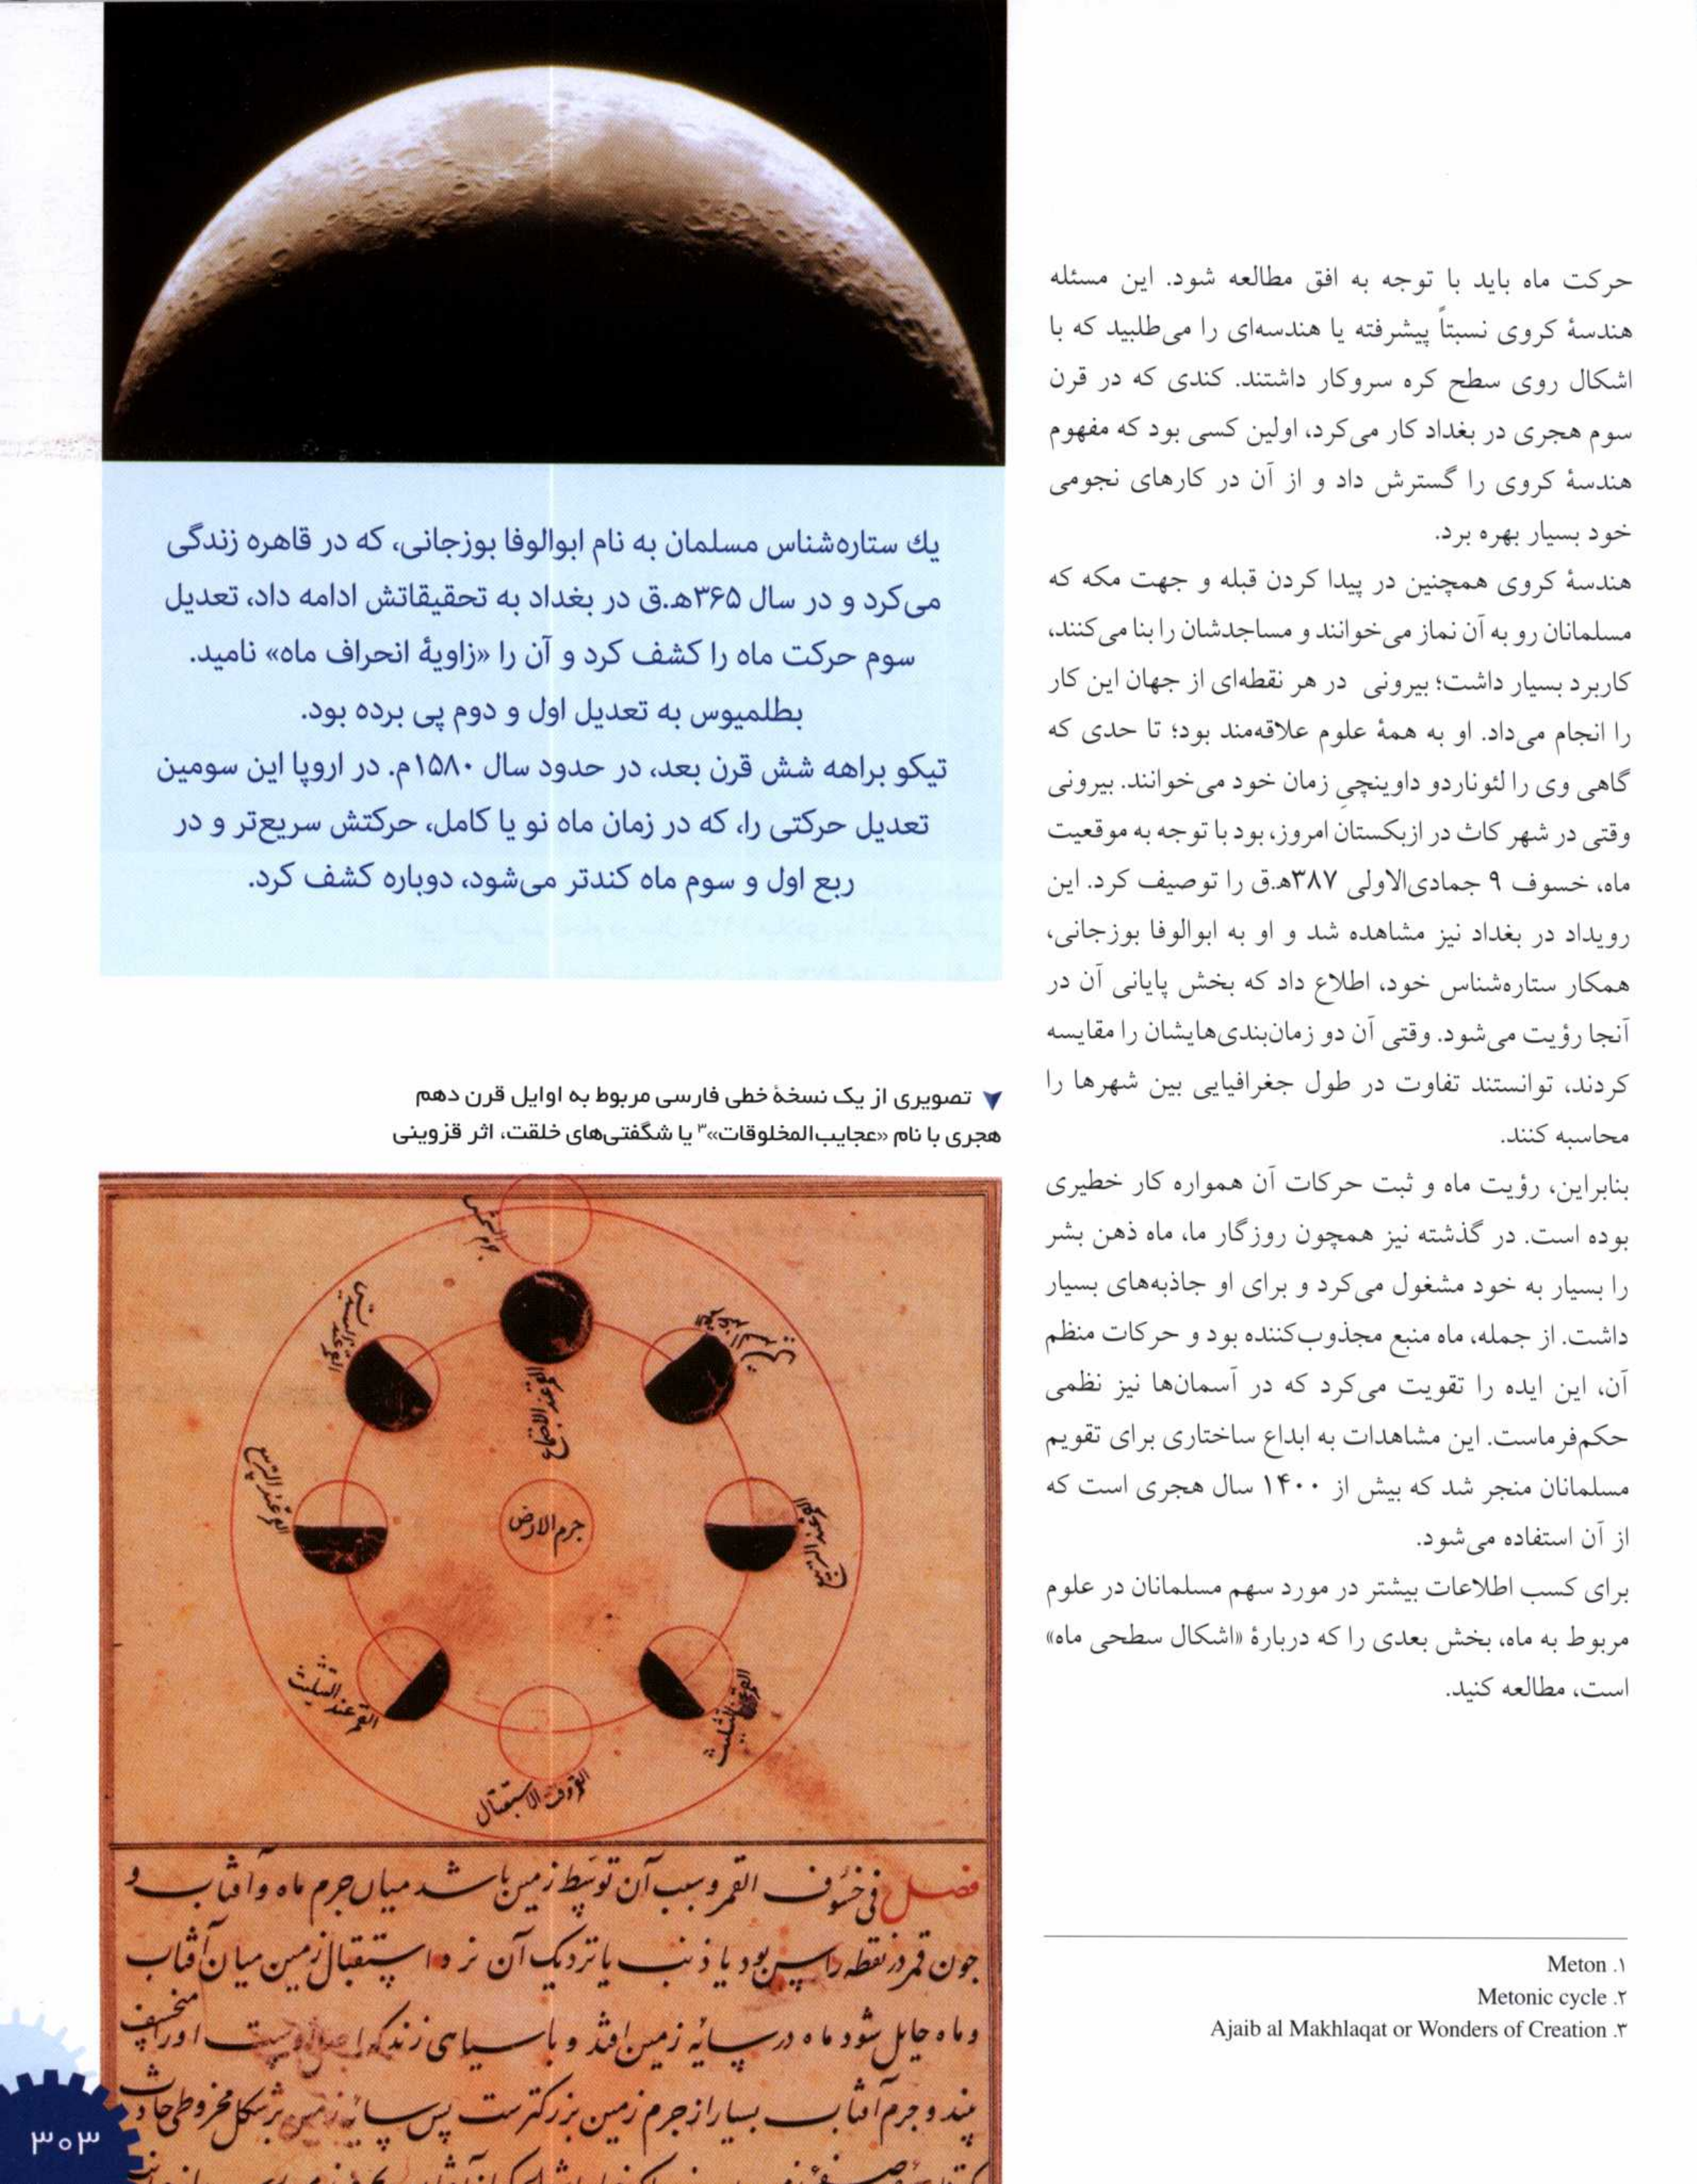 حرکت ماه باید با توجه به افق مطالعه شود. این مسئله
هندسهٔ کروی نسبتاً پیشرفته یا هندسه‌ای را می‌طلبید که با
اشکال روی سطح کره سروکار داشتند. کندی که در قرن
سوم هجری در بغداد کار می‌کرد، اولین کسی بود که مفهوم
هندسهٔ کروی را گسترش داد و از آن در کارهای نجومی
خود بسیار بهره برد.
هندسهٔ کروی همچنین در پیدا کردن قبله و جهت مکه که
مسلمانان رو به آن نماز می‌خوانند و مساجدشان را بنا می‌کنند،
کاربرد بسیار داشت؛ بیرونی در هر نقطه‌ای از جهان این کار
را انجام می‌داد. او به همهٔ علوم علاقه‌مند بود؛ تا حدی که
گاهی وی را لئوناردو داوینچیِ زمان خود می‌خوانند. بیرونی
وقتی در شهر کاث در ازبکستان امروز، بود با توجه به موقعیت
ماه، خسوف ۹ جمادی‌الاولی ۳۸۷هـ.ق را توصیف کرد. این
رویداد در بغداد نیز مشاهده شد و او به ابوالوفا بوزجانی،
همکار ستاره‌شناس خود، اطلاع داد که بخش پایانی آن در
آنجا رؤیت می‌شود. وقتی آن دو زمان‌بندی‌هایشان را مقایسه
کردند، توانستند تفاوت در طول جغرافیایی بین شهرها را
محاسبه کنند.
بنابراین، رؤیت ماه و ثبت حرکات آن همواره کار خطیری
بوده است. در گذشته نیز همچون روزگار ما، ماه ذهن بشر
را بسیار به خود مشغول می‌کرد و برای او جاذبه‌های بسیار
داشت. از جمله، ماه منبع مجذوب‌کننده بود و حرکات منظم
آن، این ایده را تقویت می‌کرد که در آسمان‌ها نیز نظمی
حکم‌فرماست. این مشاهدات به ابداع ساختاری برای تقویم
مسلمانان منجر شد که بیش از ۱۴۰۰ سال هجری است که
از آن استفاده می‌شود.
برای کسب اطلاعات بیشتر در مورد سهم مسلمانان در علوم
مربوط به ماه، بخش بعدی را که دربارهٔ «اشکال سطحی ماه»
است، مطالعه کنید.
۱. Meton
۲. Metonic cycle
۳. Ajaib al Makhlaqat or Wonders of Creation
یك ستاره‌شناس مسلمان به نام ابوالوفا بوزجانی، که در قاهره زندگی
می‌کرد و در سال ۳۶۵هـ.ق در بغداد به تحقیقاتش ادامه داد، تعدیل
سوم حرکت ماه را کشف کرد و آن را «زاویهٔ انحراف ماه» نامید.
بطلمیوس به تعدیل اول و دوم پی برده بود.
تیکو براهه شش قرن بعد، در حدود سال ۱۵۸۰م. در اروپا این سومین
تعدیل حرکتی را، که در زمان ماه نو یا کامل، حرکتش سریع‌تر و در
ربع اول و سوم ماه کندتر می‌شود، دوباره کشف کرد.
تصویری از یک نسخهٔ خطی فارسی مربوط به اوایل قرن دهم
هجری با نام «عجایب‌المخلوقات»۳ یا شگفتی‌های خلقت، اثر قزوینی
جرم الشمس
القمر عند الاجتماع
القمر عند التربیع
جرم الارض
القمر عند التثلیث
القمر عند التثلیث
القمر فی الاستقبال
فصل فی خسوف القمر و سبب آن توسط زمین باشد میان جرم ماه و آفتاب و
جون قمر در نقطه راس بود یا ذنب یا نزدیک آن نزد استقبال زمین میان آفتاب
و ماه حایل شود ماه در سایهٔ زمین افتد و با سیاهی
و جرم آفتاب بسیار از جرم زمین بزرکترست پس سایه زمین بر شکل مخروطی حادث
۳۰۳